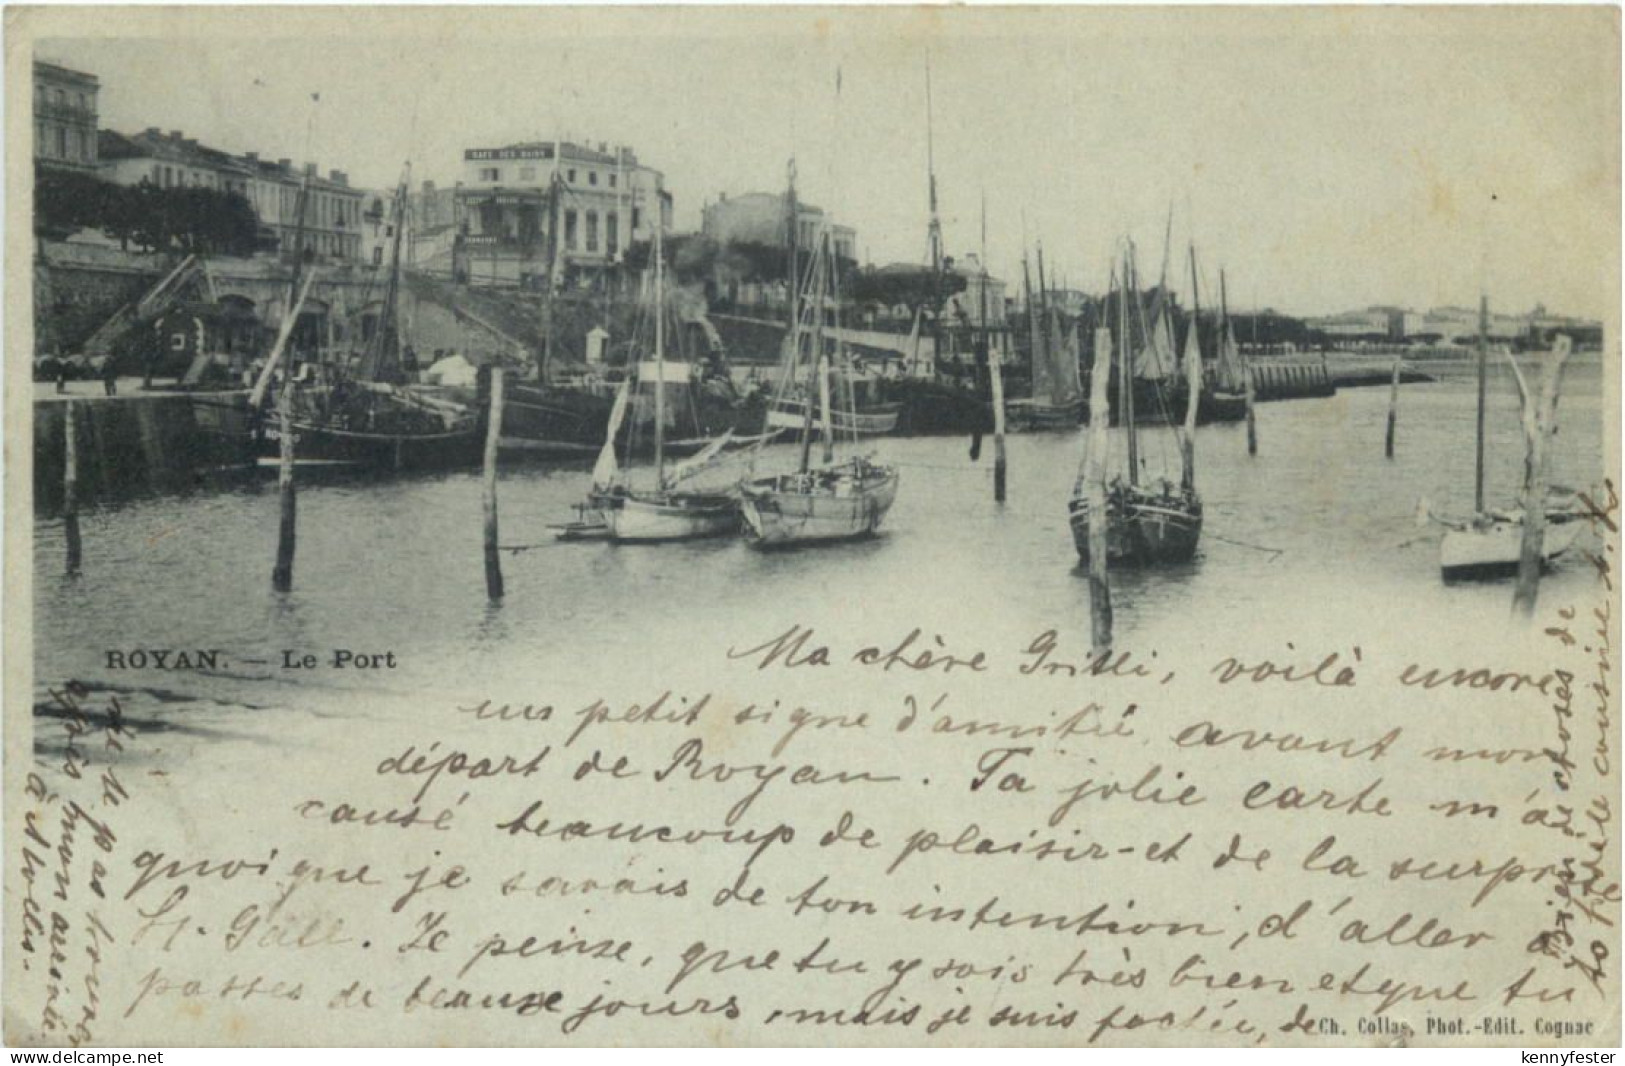 CAFE DES BAINS
ROYAN. — Le Port
Ma chère Gritli, voilà encore
un petit signe d'amitié, avant mon
départ de Royan. Ta jolie carte m'a
causé beaucoup de plaisir et de la surprise
quoique je savais de ton intention, d'aller à
St. Gall. Je pense, que tu y sois très bien et que tu
passes de beaux jours, mais je suis fachée, de
ne te pas trouver
après mon arrivée
à
Bien de choses de
ta fidèle cousine
Ch. Collas, Phot.-Edit. Cognac
delcampe.net
kennyfester